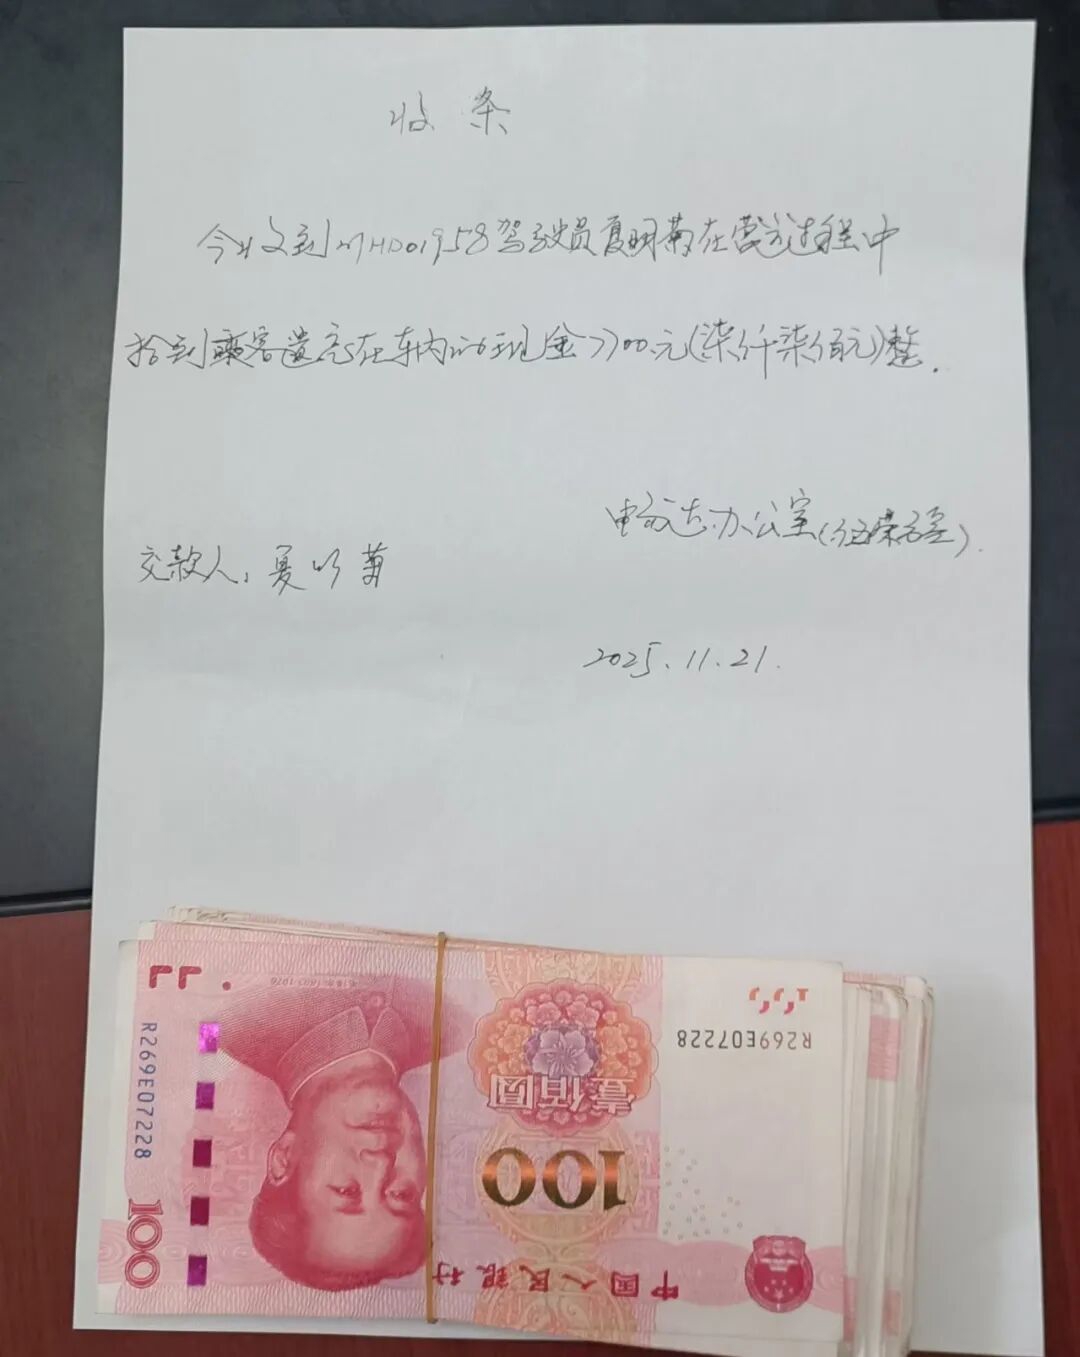 收条
今收到川HD01958驾驶员夏明菊在营运过程中
拾到乘客遗忘在车内的现金7700.元(柒仟柒佰元)整.
畅达办公室
交款人: 夏明菊
2025.11.21.
R269E07228
壹佰圆
100
中国人民银行
R269E07228
100